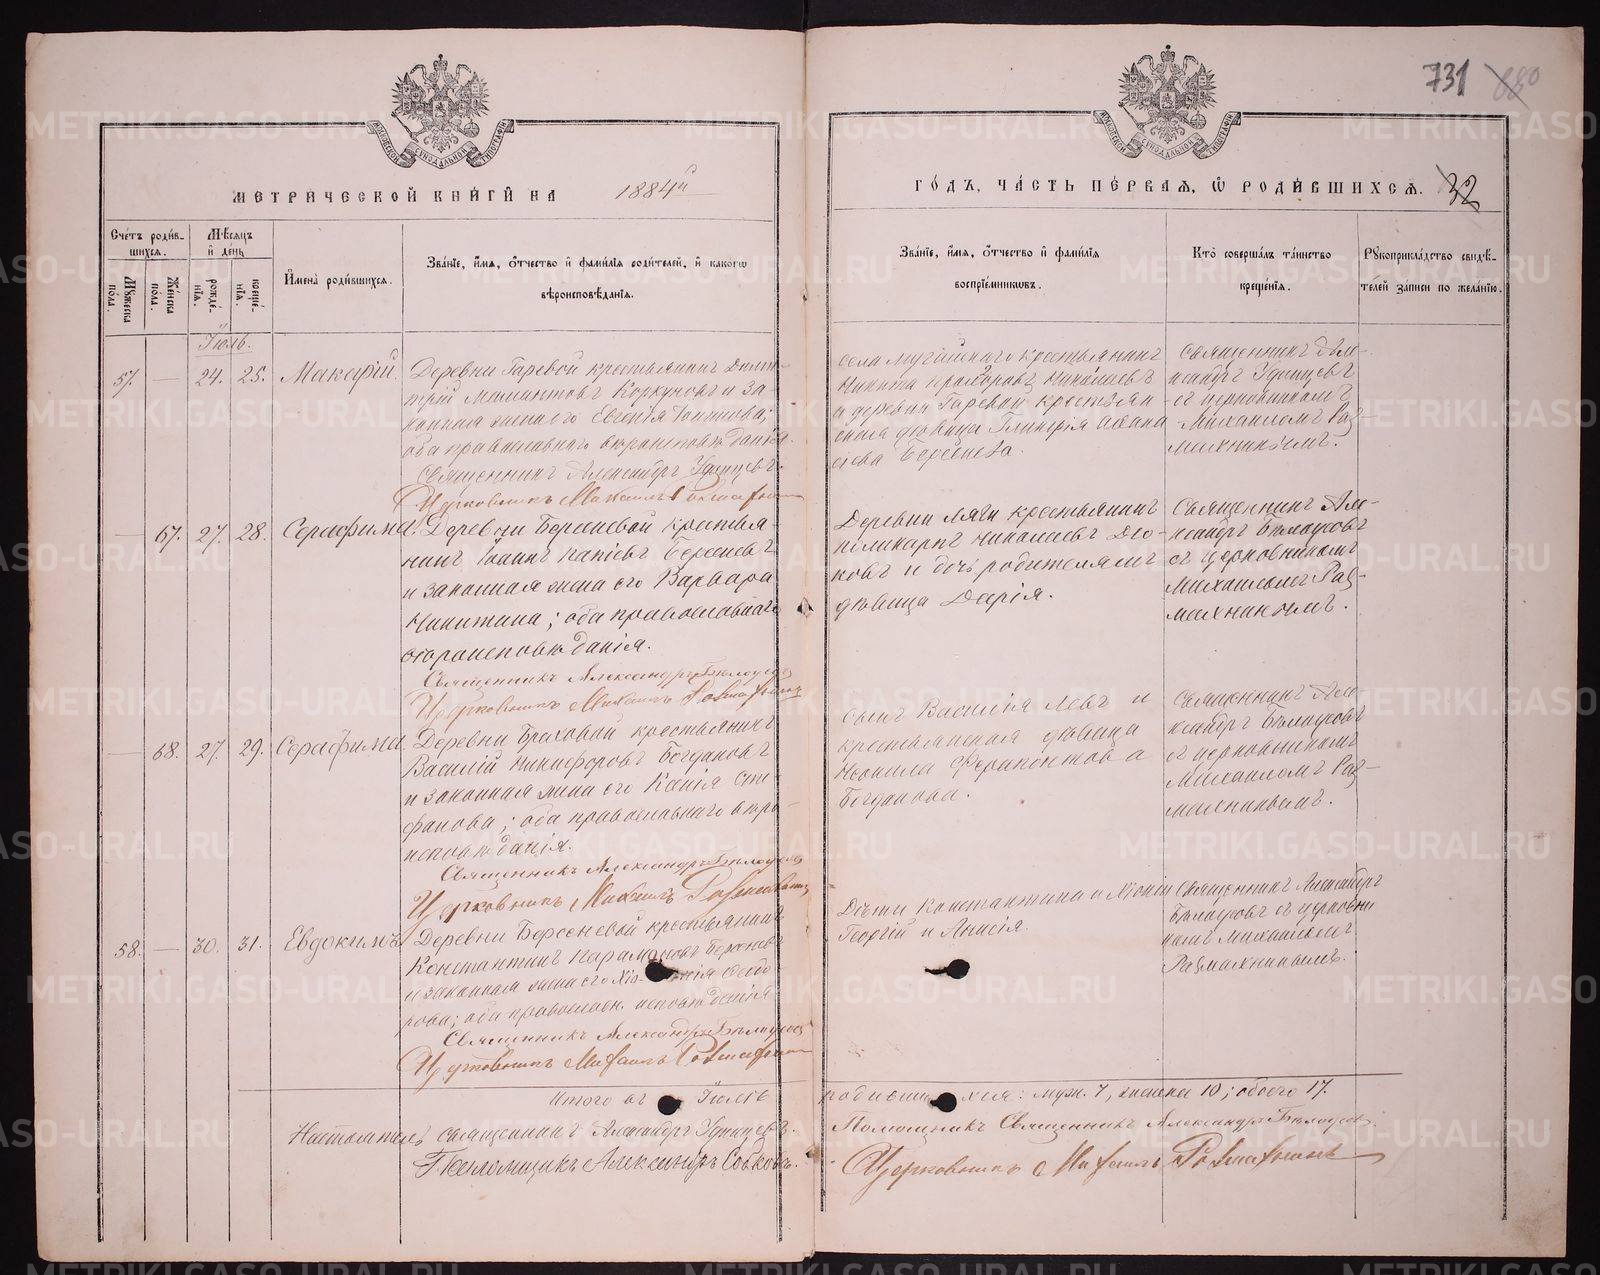 731 680
МЕТРИЧЕСКОЙ КНИГИ НА 1884й
ГОДЪ, ЧАСТЬ ПЕРВАЯ, Ѡ РОДИВШИХСЯ. 32
Счетъ родившихся.
Мѣсяцъ и день
Мужеска пола.
Женска пола.
рожденія.
крещенія.
Имена родившихся.
Званіе, имя, отчество и фамилія родителей, и какогѡ
вѣроисповѣданія.
Званіе, имя, отчество и фамилія
воспріемникѡвъ.
Кто совершалъ таинство
крещенія.
Рукоприкладство свидѣ-
телей записи по желанію.
Іюль.
57. — 24. 25. Макарій.
Деревни Гаревой крестьянинъ Дими-
трій Коркуновъ и за-
конная жена его Евгенія
оба православнаго вѣроисповѣданія.
Священникъ Александръ Удинцевъ.
Церковникъ Михаилъ Размахнинъ
крестьянинъ
Никита Прохоровъ
и деревни Гаревой крестьян-
ская дѣвица Гликерія Афана
сіева Берсенева.
Священникъ Але-
ксандръ Удинцевъ
съ церковникомъ
Михаиломъ Раз-
махнинымъ.
— 67. 27. 28. Серафима.
Деревни Берсеневой крестья-
нинъ Іоаннъ Берсеневъ
и законная жена его Варвара
Никитина; оба православнаго
вѣроисповѣданія.
Священникъ Александръ Бѣлоусовъ
Церковникъ Михаилъ Размахнинъ
Деревни Ляги крестьянинъ
Поликарпъ Николаевъ Дьо-
ковъ и дочь родителямъ
дѣвица Дарія.
Священникъ Але-
ксандръ Бѣлоусовъ
съ церковникомъ
Михаиломъ Раз-
махнинымъ.
— 68. 27. 29. Серафима
Деревни крестьянинъ
Василій Никифоровъ Богдановъ
и законная жена его Капія Сте-
фанова; оба православнаго вѣро-
исповѣданія.
Священникъ Александръ Бѣлоусовъ
Церковникъ Михаилъ Размахнинъ
сынъ Василія Левъ и
крестьянская дѣвица
Неонила Ферапонтова
Богданова.
Священникъ Але-
ксандръ Бѣлоусовъ
съ церковникомъ
Михаиломъ Раз-
махнинымъ.
58. — 30. 31. Евдокимъ
Деревни Берсеневой крестьянинъ
Константинъ Парамоновъ Берсеневъ
и законная жена его Хіонія Ѳеодо-
рова; оба православн. исповѣданія
Священникъ Александръ Бѣлоусовъ
Церковникъ Михаилъ Размахнинъ
Дѣти Константина и Хіоніи
Георгій и Анисія.
Священникъ Александръ
Бѣлоусовъ съ церковни
комъ Михаиломъ
Размахнинымъ.
Итого въ Іюлѣ родившихся: муж. 7, женска 10; обоего 17.
Настоятель священникъ Александръ Удинцевъ.
Помощникъ Священникъ Александръ Бѣлоусовъ.
Псаломщикъ Александръ
Церковникъ Михаилъ Размахнинъ
METRIKI.GASO-URAL.RU